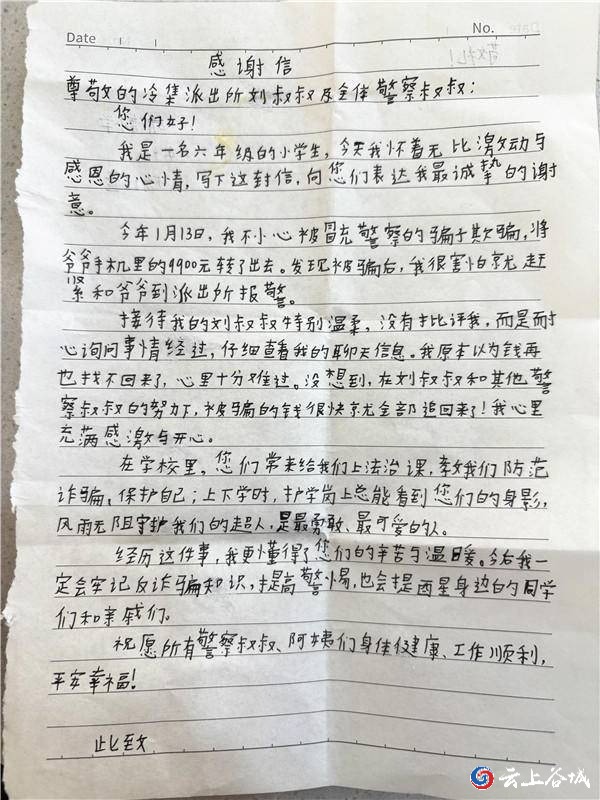 Date
No.
感谢信
尊敬的冷集派出所刘叔叔及全体警察叔叔：
您们好！
我是一名六年级的小学生，今天我怀着无比激动与
感恩的心情，写下这封信，向您们表达我最诚挚的谢
意。
今年1月13日，我不小心被冒充警察的骗子欺骗，将
爷爷手机里的9900元转了出去。发现被骗后，我很害怕就赶
紧和爷爷到派出所报警。
接待我的刘叔叔特别温柔，没有批评我，而是耐
心询问事情经过，仔细查看我的聊天信息。我原本以为钱再
也找不回来了，心里十分难过。没想到，在刘叔叔和其他警
察叔叔的努力下，被骗的钱很快就全部追回来了！我心里
充满感激与开心。
在学校里，您们常来给我们上法治课，教我们防范
诈骗、保护自己；上下学时，护学岗上总能看到您们的身影，
风雨无阻守护我们的超人，是最勇敢、最可爱的人。
经历这件事，我更懂得了您们的辛苦与温暖。今后我一
定会牢记反诈骗知识，提高警惕，也会提醒身边的同学
们和亲戚们。
祝愿所有警察叔叔、阿姨们身体健康、工作顺利，
平安幸福！
此致
云上谷城